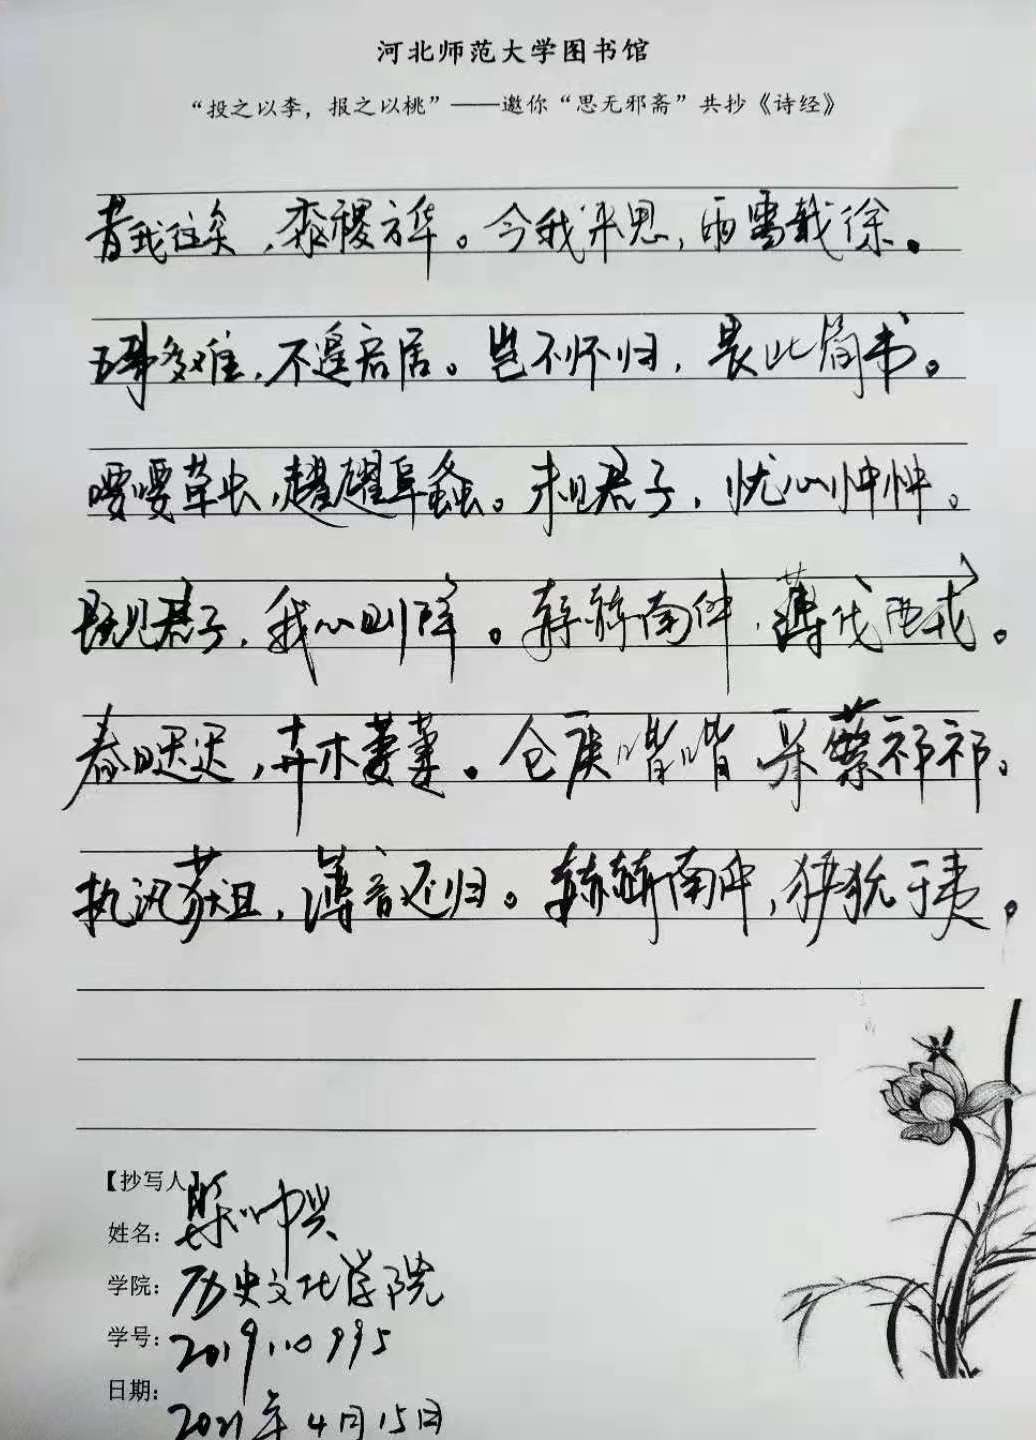 河北师范大学图书馆
“投之以李，报之以桃”——邀你“思无邪斋”共抄《诗经》
昔我往矣，黍稷方华。今我来思，雨雪载途。
王事多难，不遑启居。岂不怀归，畏此简书。
喓喓草虫，趯趯阜螽。未见君子，忧心忡忡。
既见君子，我心则降。赫赫南仲，薄伐西戎。
春日迟迟，卉木萋萋。仓庚喈喈 采蘩祁祁。
执讯获丑，薄言还归。赫赫南仲，猃狁于夷。
【抄写人】
姓名：中兴
学院：历史文化学院
学号：2019110995
日期：2021年4月15日